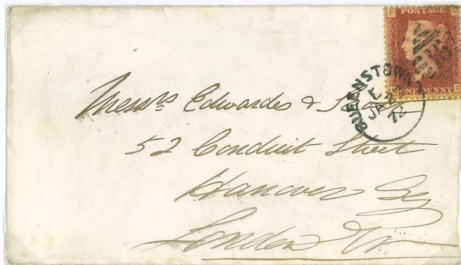 POSTAGE
ONE PENNY
QUEENSTOWN
E
JA
72
Messrs Edwardes &
52 Conduit Street
Hanover Sq
London W.